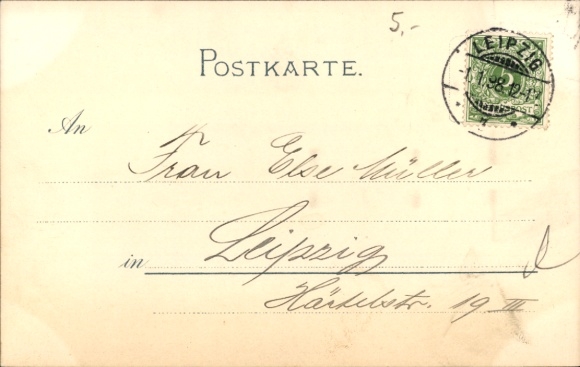 5,-
LEIPZIG
1.1.98.12-1N
POST
POSTKARTE.
An
Frau Else Müller
in Leipzig
Härtelstr. 19 III